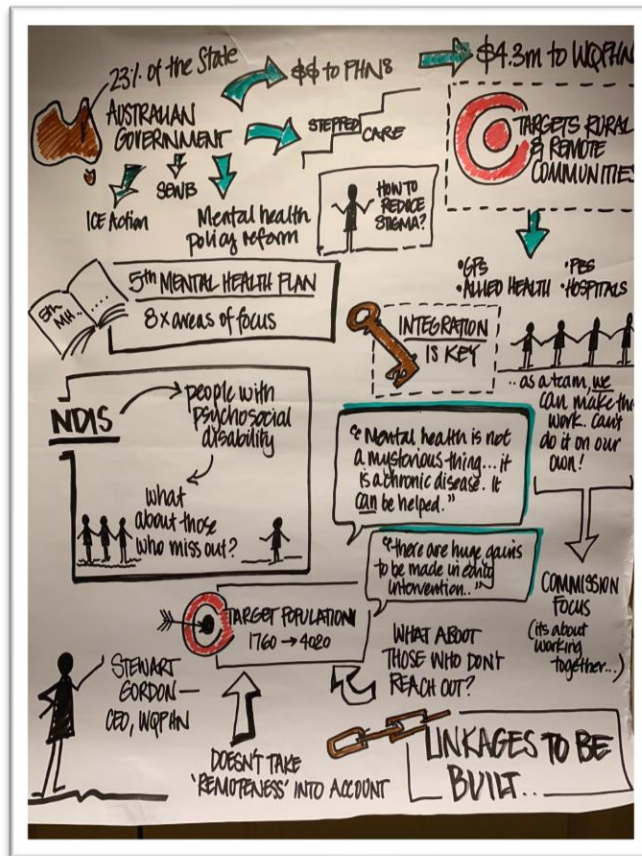 23% of the State
AUSTRALIAN
GOVERNMENT
$$ to PHNs
$4.3m to WQPHN
STEPPED
CARE
TARGETS RURAL
& REMOTE
COMMUNITIES
ICE Action
SEWB
Mental health
policy reform
HOW TO
REDUCE
STIGMA?
•GPs
•PBS
•ALLIED HEALTH
•HOSPITALS
5th
MH..
5th MENTAL HEALTH PLAN
8x areas of focus
INTEGRATION
IS KEY
.. as a team, we
can make th
work. Can't
do it on our
own!
NDIS
people with
psychosocial
disability
what
about those
who miss out?
"Mental health is not
a mysterious thing... it
is a chronic disease. It
can be helped."
"there are huge gains
to be made in early
intervention.."
COMMISSION
FOCUS
(its about
working
together...)
TARGET POPULATION
1760 → 4020
WHAT ABOUT
THOSE WHO DON'T
REACH OUT?
STEWART
GORDON —
CEO, WQPHN
DOESN'T TAKE
'REMOTENESS' INTO ACCOUNT
LINKAGES TO BE
BUILT..